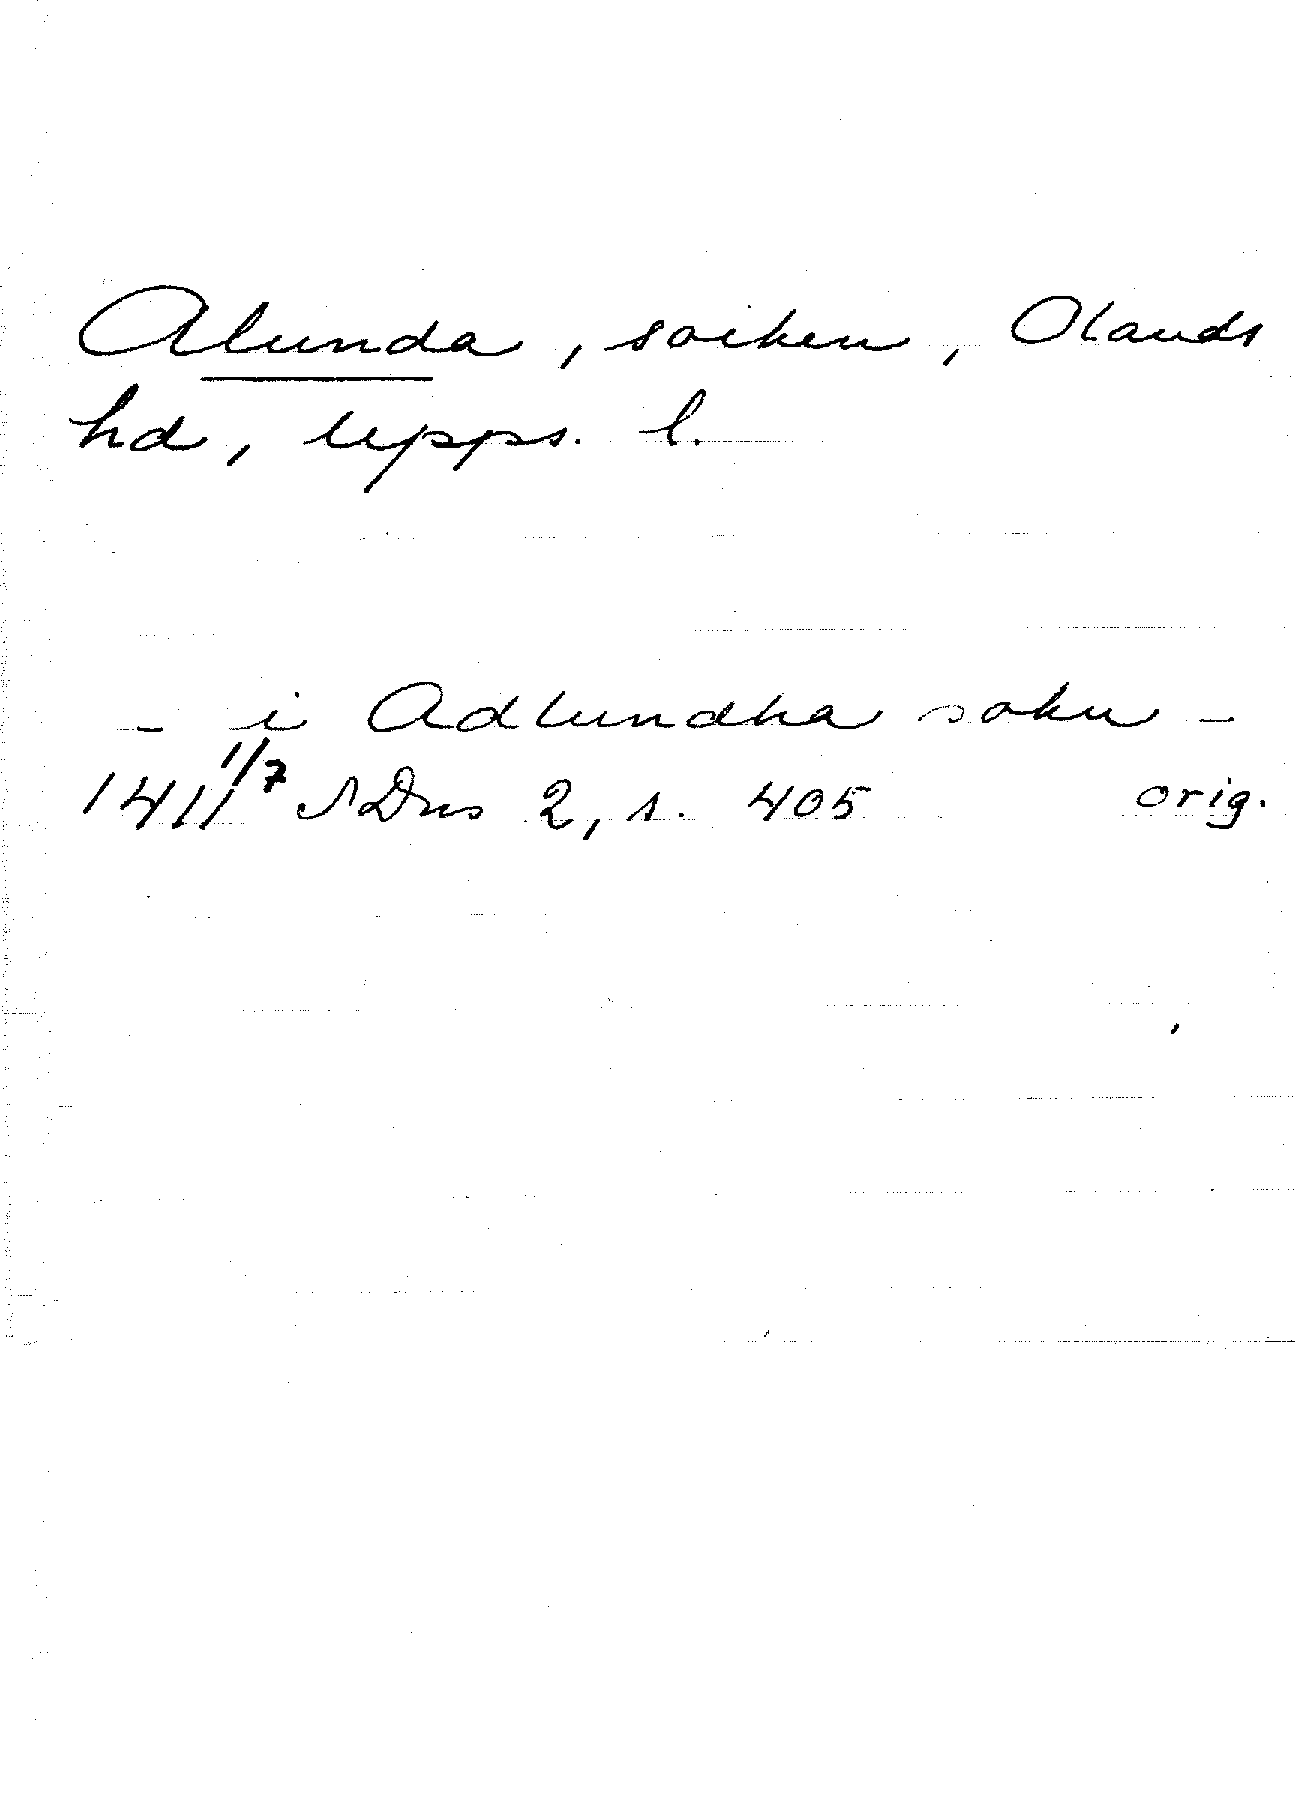 Alunda, socken, Olands
hd, Upps. l.
- i Adlundha sokn -
1411 1/7 SDns 2, s. 405 orig.